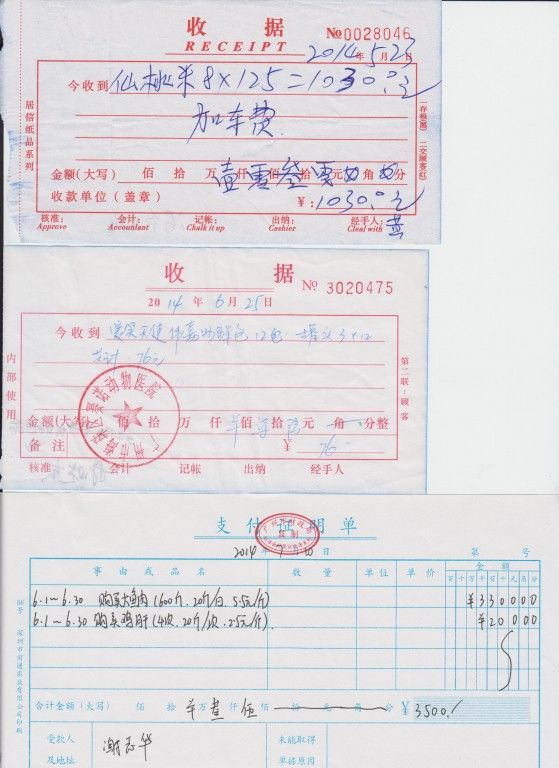 收 据
RECEIPT
№0028046
2014年5月23日
今收到 仙桃米8×125=1030.元
加车费.
金额(大写) 佰 拾 万 仟 佰 拾 元 角 分
壹零叁零
收款单位(盖章) ¥:1030.元
核准: 会计: 记帐: 出纳: 经手人: 黄
Approve Accountant Chalk it up Cashier Cleal with
居信纸品系列
一存根(黑) 二交顾客(红)
收 据
№ 3020475
2014年6月25日
今收到 12包 3×12
共计:76元
金额(大写) 佰 拾 万 仟 佰 拾 元 角 分整
备 注 ¥ 76.
核准 会计 记帐 出纳 经手人
内部使用
第二联:顾客
动物医院
支付证明单
2014年7月10日 第 号
事由或品名 数量 单位 单价 金额
百 十 万 千 百 十 元 角 分
6.1~6.30 购买大鱼肉(600斤.20斤/日.5.5元/斤) ¥330000
6.1~6.30 购买鸡肝(4次.20斤/次.2.5元/斤). ¥20000
合计金额(大写) 佰 拾 万叁仟伍佰 拾 元 角 分 ¥3500./
受款人
及地址
谢志华
未能取得
单据原因
06号 深圳市前通实业有限公司印刷